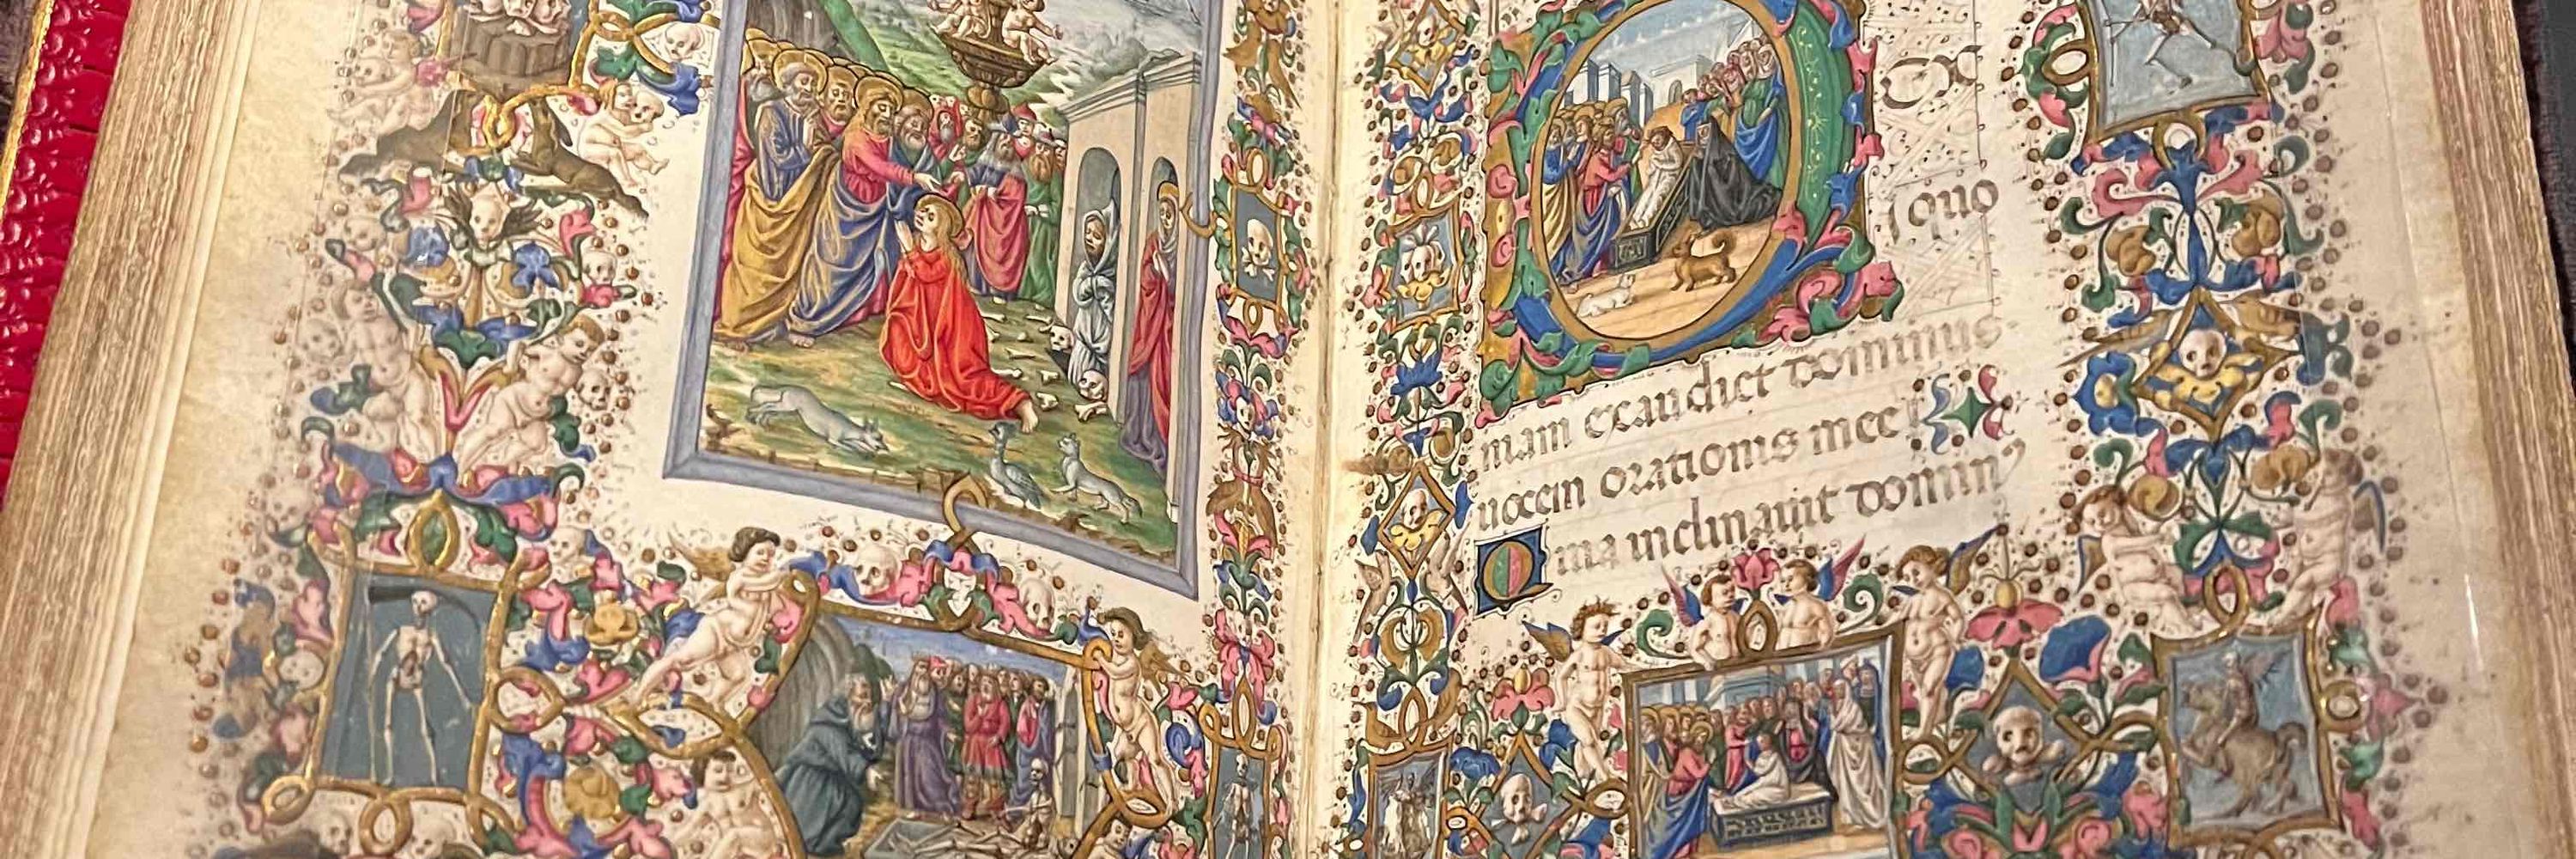 ex
i quo
niam exaudiet dominus
uocem orationis mee
Quia inclinauit domin